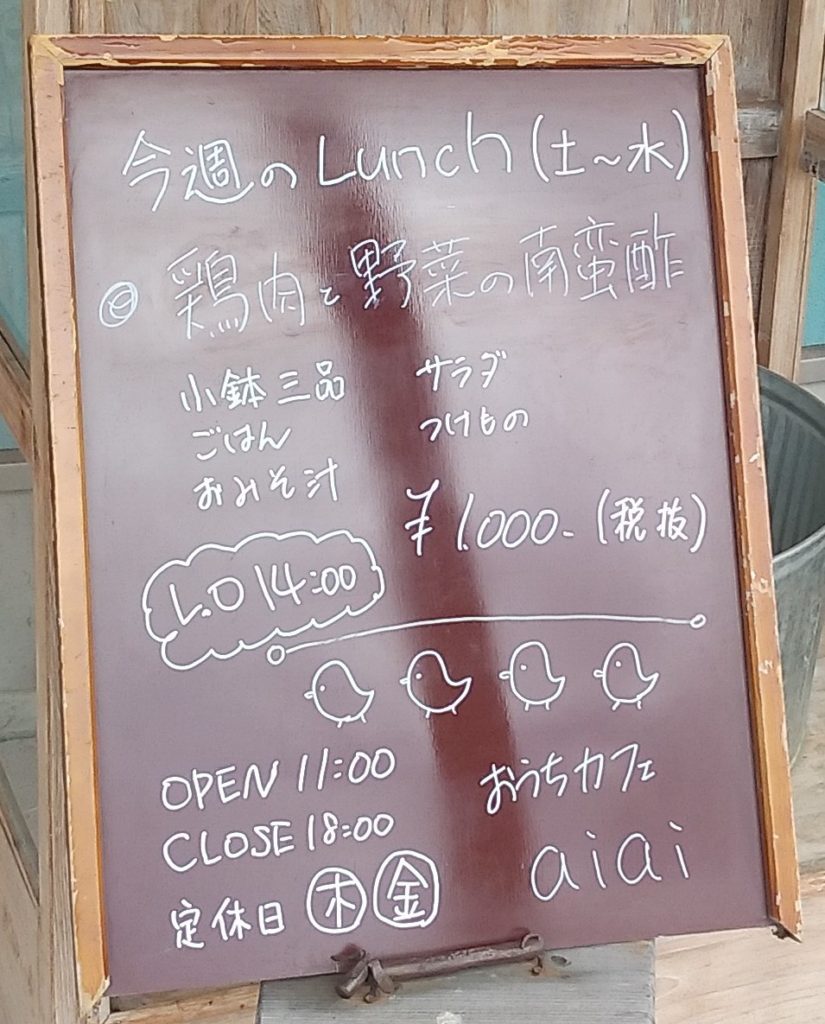 今週のLunch(土~水)
◎鶏肉と野菜の南蛮酢
小鉢三品 サラダ
ごはん つけもの
おみそ汁
¥1.000-(税抜)
L.O 14:00
OPEN 11:00
CLOSE 18:00
定休日 木 金
おうちカフェ
aiai